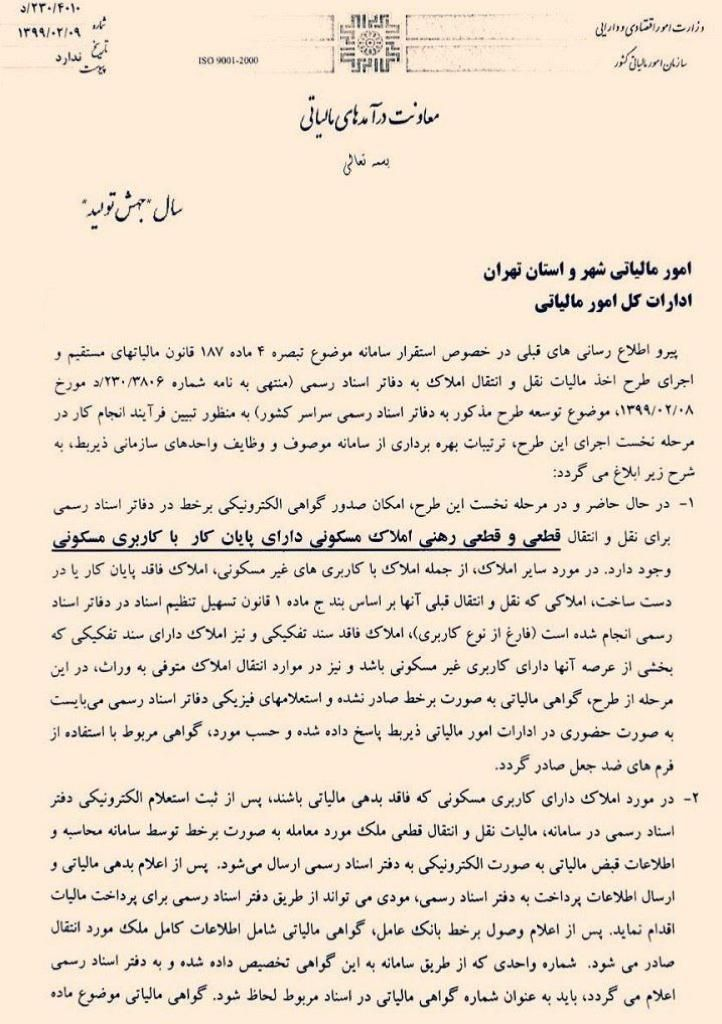 وزارت امور اقتصادی و دارایی
سازمان امور مالیاتی کشور
ISO 9001-2000
۲۳۰/۴۰۱۰/د
شماره
۱۳۹۹/۰۲/۰۹
تاریخ
ندارد
پیوست
معاونت درآمدهای مالیاتی
بسمه تعالی
سال "جهش تولید"
امور مالیاتی شهر و استان تهران
ادارات کل امور مالیاتی
پیرو اطلاع رسانی های قبلی در خصوص استقرار سامانه موضوع تبصره ۴ ماده ۱۸۷ قانون مالیاتهای مستقیم و
اجرای طرح اخذ مالیات نقل و انتقال املاک به دفاتر اسناد رسمی (منتهی به نامه شماره ۲۳۰/۳۸۰۶/د مورخ
۱۳۹۹/۰۲/۰۸، موضوع توسعه طرح مذکور به دفاتر اسناد رسمی سراسر کشور) به منظور تبیین فرآیند انجام کار در
مرحله نخست اجرای این طرح، ترتیبات بهره برداری از سامانه موصوف و وظایف واحدهای سازمانی ذیربط، به
شرح زیر ابلاغ می گردد:
۱- در حال حاضر و در مرحله نخست این طرح، امکان صدور گواهی الکترونیکی برخط در دفاتر اسناد رسمی
برای نقل و انتقال قطعی و قطعی رهنی املاک مسکونی دارای پایان کار با کاربری مسکونی
وجود دارد. در مورد سایر املاک، از جمله املاک با کاربری های غیر مسکونی، املاک فاقد پایان کار یا در
دست ساخت، املاکی که نقل و انتقال قبلی آنها بر اساس بند ج ماده ۱ قانون تسهیل تنظیم اسناد در دفاتر اسناد
رسمی انجام شده است (فارغ از نوع کاربری)، املاک فاقد سند تفکیکی و نیز املاک دارای سند تفکیکی که
بخشی از عرصه آنها دارای کاربری غیر مسکونی باشد و نیز در موارد انتقال املاک متوفی به وراث، در این
مرحله از طرح، گواهی مالیاتی به صورت برخط صادر نشده و استعلامهای فیزیکی دفاتر اسناد رسمی می‌بایست
به صورت حضوری در ادارات امور مالیاتی ذیربط پاسخ داده شده و حسب مورد، گواهی مربوط با استفاده از
فرم های ضد جعل صادر گردد.
۲- در مورد املاک دارای کاربری مسکونی که فاقد بدهی مالیاتی باشند، پس از ثبت استعلام الکترونیکی دفتر
اسناد رسمی در سامانه، مالیات نقل و انتقال قطعی ملک مورد معامله به صورت برخط توسط سامانه محاسبه و
اطلاعات قبض مالیاتی به صورت الکترونیکی به دفتر اسناد رسمی ارسال می‌شود. پس از اعلام بدهی مالیاتی و
ارسال اطلاعات پرداخت به دفتر اسناد رسمی، مودی می تواند از طریق دفتر اسناد رسمی برای پرداخت مالیات
اقدام نماید. پس از اعلام وصول برخط بانک عامل، گواهی مالیاتی شامل اطلاعات کامل ملک مورد انتقال
صادر می شود. شماره واحدی که از طریق سامانه به این گواهی تخصیص داده شده و به دفتر اسناد رسمی
اعلام می گردد، باید به عنوان شماره گواهی مالیاتی در اسناد مربوط لحاظ شود. گواهی مالیاتی موضوع ماده